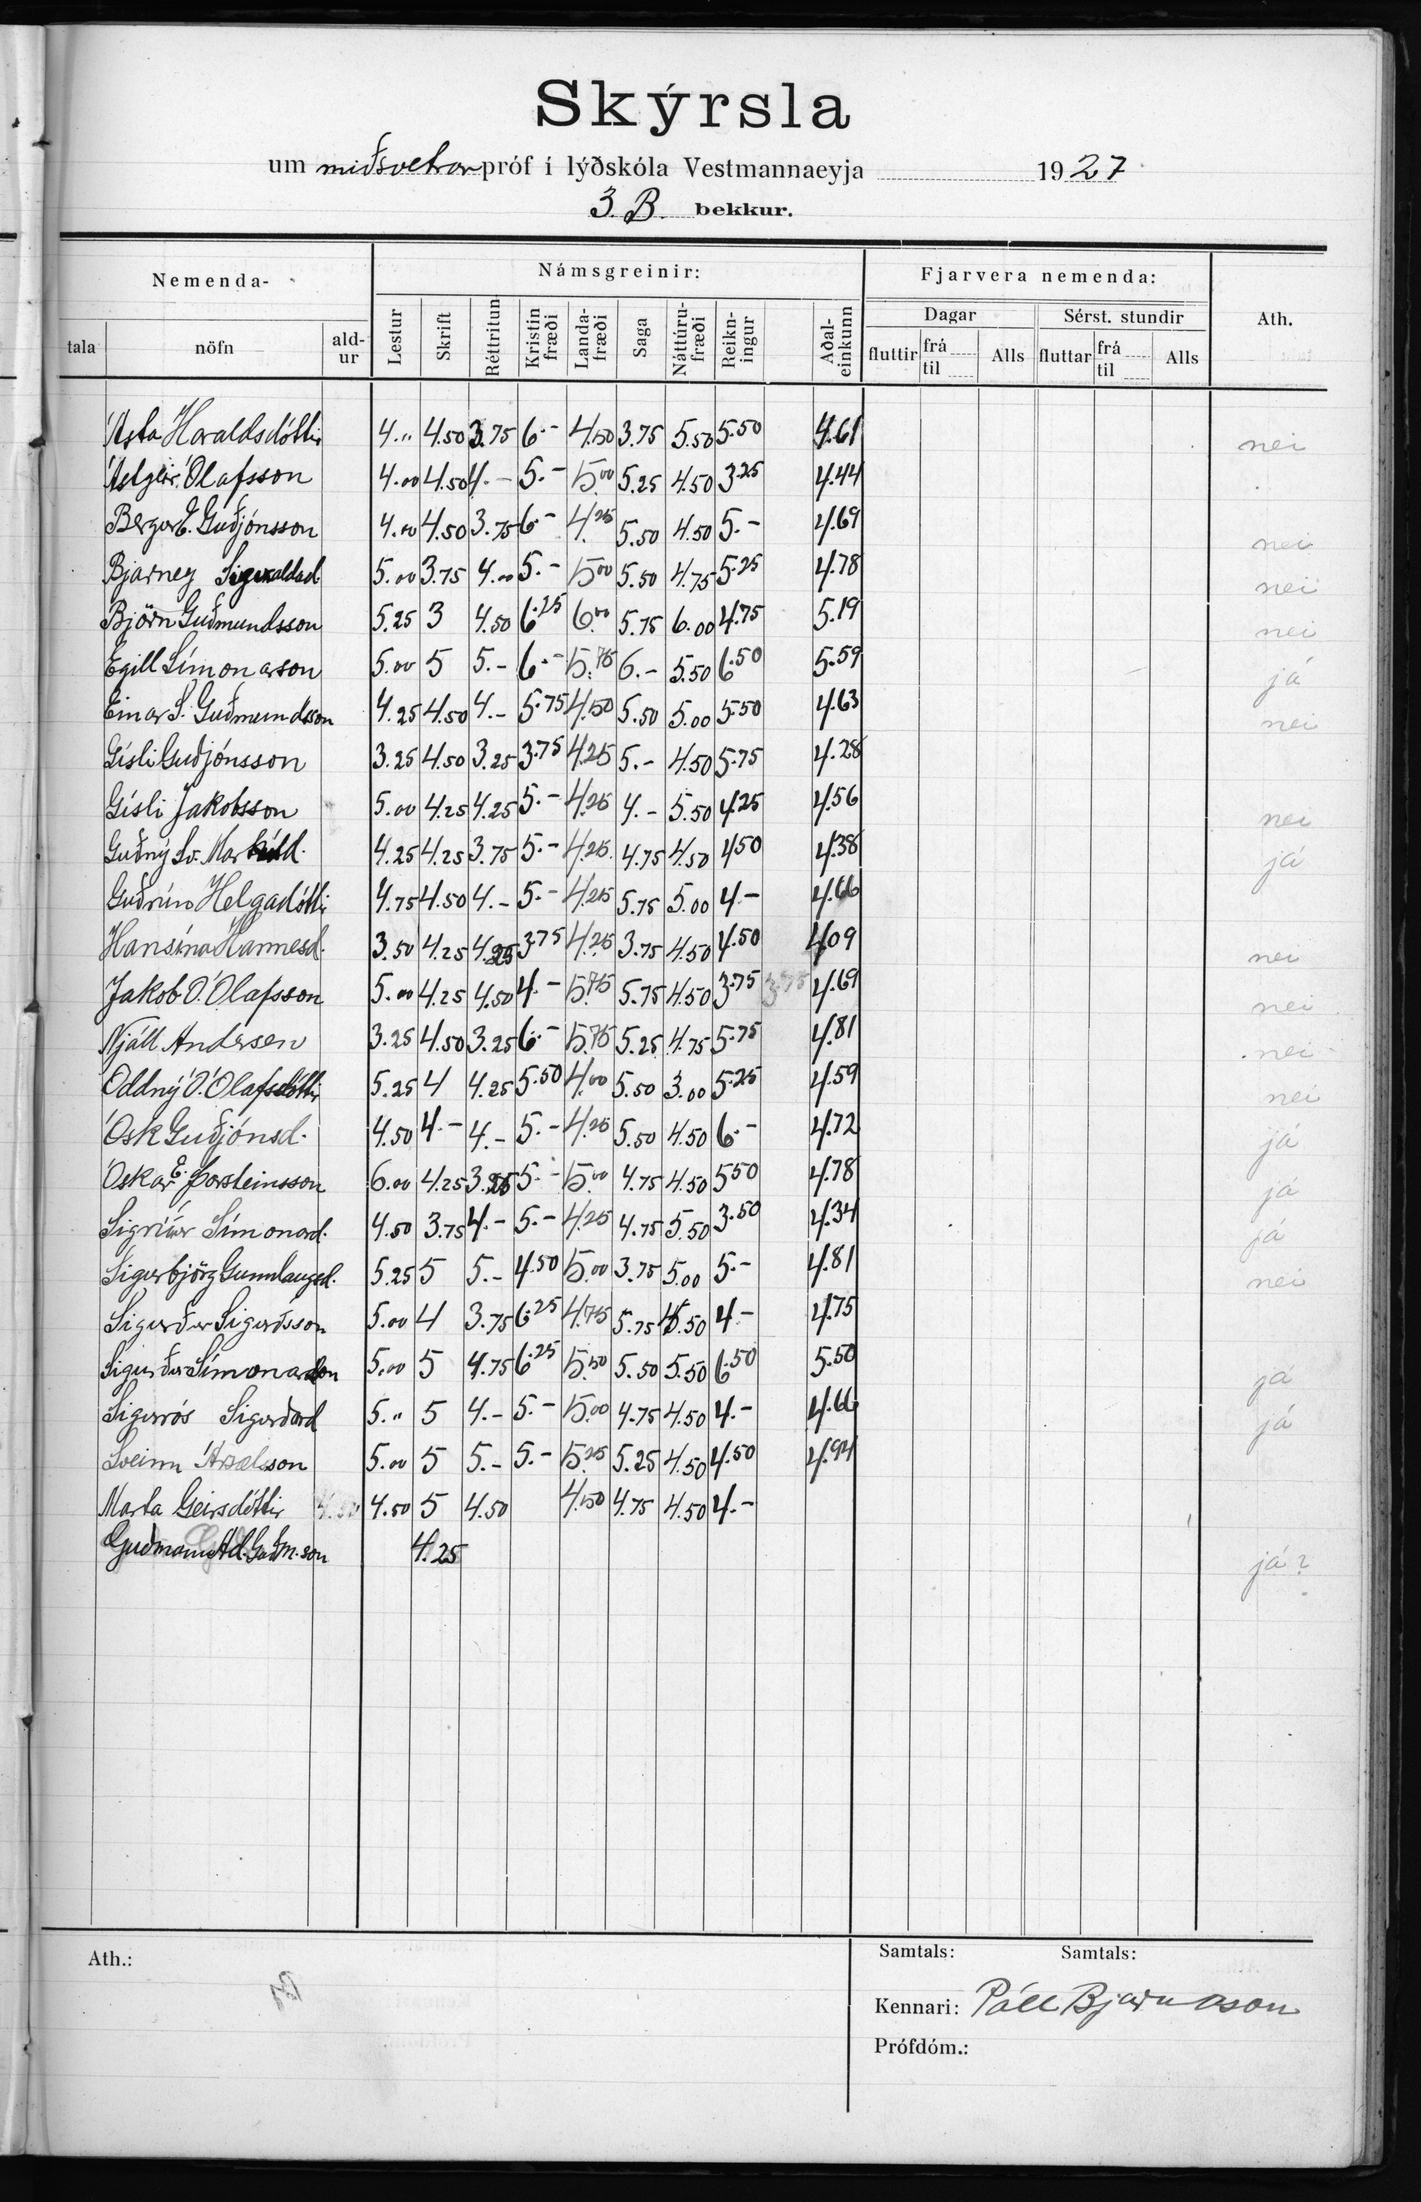 Skýrsla
um miðsvetrar próf í lýðskóla Vestmannaeyja 1927
3. B. bekkur.
Nemenda- Námsgreinir: Fjarvera nemenda: Ath.
Dagar Sérst. stundir
tala nöfn ald-ur Lestur Skrift Réttritun Kristinfræði Landa-fræði Saga Náttúru-fræði Reikn-ingur Aðal-einkunn fluttir frá til Alls fluttar frá til Alls
Ásta Haraldsdóttir 4.„ 4.50 3.75 6.- 4.50 3.75 5.50 5.50 4.61 nei
Ástgeir Ólafsson 4.00 4.50 4.- 5.- 5.00 5.25 4.50 3.25 4.44
Bergur E. Guðjónsson 4.00 4.50 3.75 6.- 4.25 5.50 4.50 5.- 4.69 nei
Bjarney Sigvaldad. 5.00 3.75 4.00 5.- 5.00 5.50 4.75 5.25 4.78 nei
Björn Guðmundsson 5.25 3 4.50 6.25 6.00 5.75 6.00 4.75 5.19 nei
Egill Símonarson 5.00 5 5.- 6.- 5.75 6.- 5.50 6.50 5.59 já
Einar S. Guðmundsson 4.25 4.50 4.- 5.75 4.50 5.50 5.00 5.50 4.63 nei
Gísli Guðjónsson 3.25 4.50 3.25 3.75 4.25 5.- 4.50 5.75 4.28
Gísli Jakobsson 5.00 4.25 4.25 5.- 4.25 4.- 5.50 4.25 4.56 nei
Guðný Sv. 4.25 4.25 3.75 5.- 4.25 4.75 4.50 4.50 4.38 já
Guðrún Helgadóttir 4.75 4.50 4.- 5.- 4.25 5.75 5.00 4.- 4.66
Hansína Hannesd. 3.50 4.25 4.25 3.75 4.25 3.75 4.50 4.50 4.09 nei
Jakob Ó. Ólafsson 5.00 4.25 4.50 4.- 5.75 5.75 4.50 3.75 3.75 4.69 nei
Njáll Andersen 3.25 4.50 3.25 6.- 5.75 5.25 4.75 5.75 4.81 nei
Oddný Ó. Ólafsdóttir 5.25 4 4.25 5.50 4.00 5.50 3.00 5.25 4.59 nei
Ósk Guðjónsd. 4.50 4.- 4.- 5.- 4.25 5.50 4.50 6.- 4.72 já
Óskar E. Þorsteinsson 6.00 4.25 3.25 5.- 5.00 4.75 4.50 5.50 4.78 já
Sigríður Símonard. 4.50 3.75 4.- 5.- 4.25 4.75 5.50 3.50 4.34 já
Sigurbjörg Gunnlaugsd. 5.25 5 5.- 4.50 5.00 3.75 5.00 5.- 4.81 nei
Sigurður Sigurðsson 5.00 4 3.75 6.25 4.75 5.75 4.50 4.- 4.75
Sigurður Símonarson 5.00 5 4.75 6.25 5.50 5.50 5.50 6.50 5.50 já
Sigurrós Sigurðard 5.„ 5 4.- 5.- 5.00 4.75 4.50 4.- 4.66 já
Sveinn Ársælsson 5.00 5 5.- 5.- 5.25 5.25 4.50 4.50 4.94
Marta Geirsdóttir 4.50 4.50 5 4.50 4.50 4.75 4.50 4.-
Guðmann Að. Guðm.son 4.25 já?
Ath.: Samtals: Samtals:
Kennari: Páll Bjarnason
Prófdóm.: